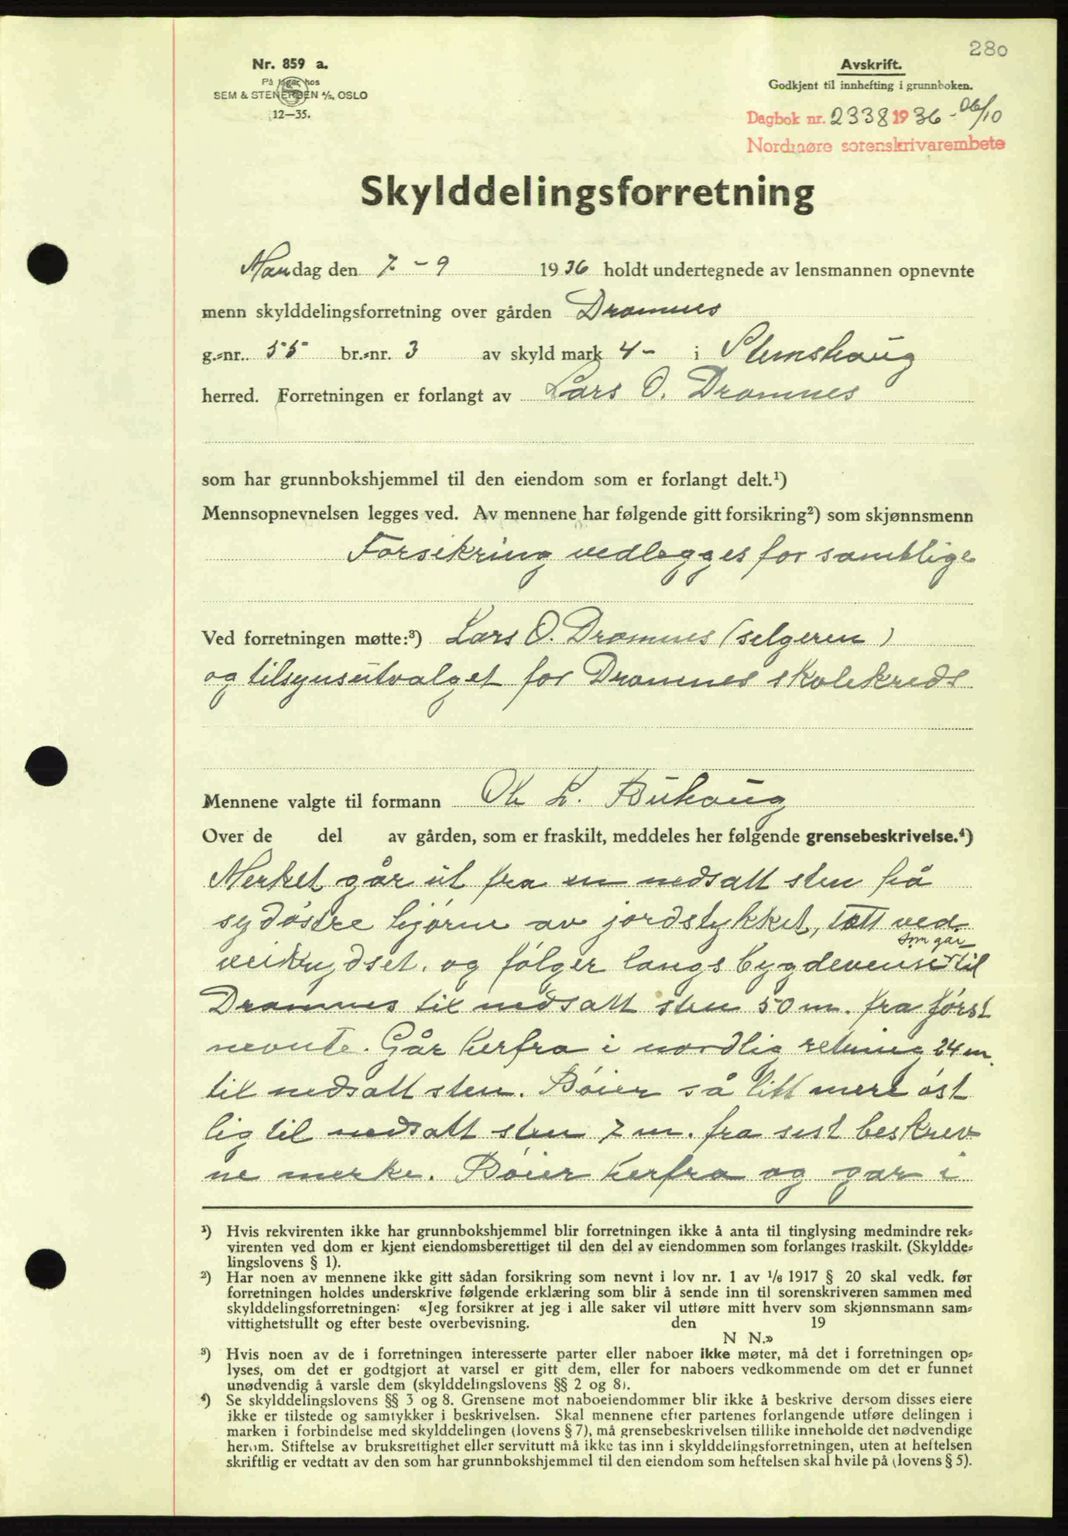 280
Nr. 859 a.
På lager hos
SEM & STENERSEN A/S, OSLO
12—35.
Avskrift.
Godkjent til innhefting i grunnboken.
Dagbok nr. 2338 1936 - 06/10
Nordmøre sorenskrivarembete
Skylddelingsforretning
Mandag den 7 - 9 1936 holdt undertegnede av lensmannen opnevnte
menn skylddelingsforretning over gården Dromnes
g.=nr. 55 br.=nr. 3 av skyld mark 4- i Stemshaug
herred. Forretningen er forlangt av Lars O. Dromnes
som har grunnbokshjemmel til den eiendom som er forlangt delt.¹)
Mennsopnevnelsen legges ved. Av mennene har følgende gitt forsikring²) som skjønnsmenn
Forsikring vedlegges for samtlige
Ved forretningen møtte:³) Lars O. Dromnes (selgeren)
og tilsynsutvalget for Dromnes skolekreds
Mennene valgte til formann Ole L. Buhaug
Over de del av gården, som er fraskilt, meddeles her følgende grensebeskrivelse.⁴)
Merket går ut fra en nedsatt sten på
sydøstre hjørne av jordstykket, tett ved
veikrydset, og følger langs bygdeveien som går til
Dromnes til nedsatt sten 50 m. fra først
nevnte. Går herfra i nordlig retning 24 m.
til nedsatt sten. Bøier så litt mere øst
lig til nedsatt sten 7 m. fra sist beskrev
ne merke. Bøier herfra og går i
¹) Hvis rekvirenten ikke har grunnbokshjemmel blir forretningen ikke å anta til tinglysing medmindre rek=
virenten ved dom er kjent eiendomsberettiget til den del av eiendommen som forlanges fraskilt. (Skyldde=
lingslovens § 1).
²) Har noen av mennene ikke gitt sådan forsikring som nevnt i lov nr. 1 av 1/6 1917 § 20 skal vedk. før
forretningen holdes underskrive følgende erklæring som blir å sende inn til sorenskriveren sammen med
skylddelingsforretningen: «Jeg forsikrer at jeg i alle saker vil utføre mitt hverv som skjønnsmann sam=
vittighetsfullt og efter beste overbevisning. den 19
N N.»
³) Hvis noen av de i forretningen interesserte parter eller naboer ikke møter, må det i forretningen op=
lyses, om det er godtgjort at varsel er gitt dem, eller for naboers vedkommende om det er funnet
unødvendig å varsle dem (skylddelingslovens §§ 2 og 8).
⁴) Se skylddelingslovens §§ 3 og 8. Grensene mot naboeiendommer blir ikke å beskrive dersom disses eiere
ikke er tilstede og samtykker i beskrivelsen. Skal mennene efter partenes forlangende utføre delingen i
marken i forbindelse med skylddelingen (lovens § 7), må grensebeskrivelsen tillike inneholde det nødvendige
herom. Stiftelse av bruksrettighet eller servitutt må ikke tas inn i skylddelingsforretningen, uten at heftelsen
skriftlig er vedtatt av den som har grunnbokshjemmel til den eiendom som heftelsen skal hvile på (lovens § 5).